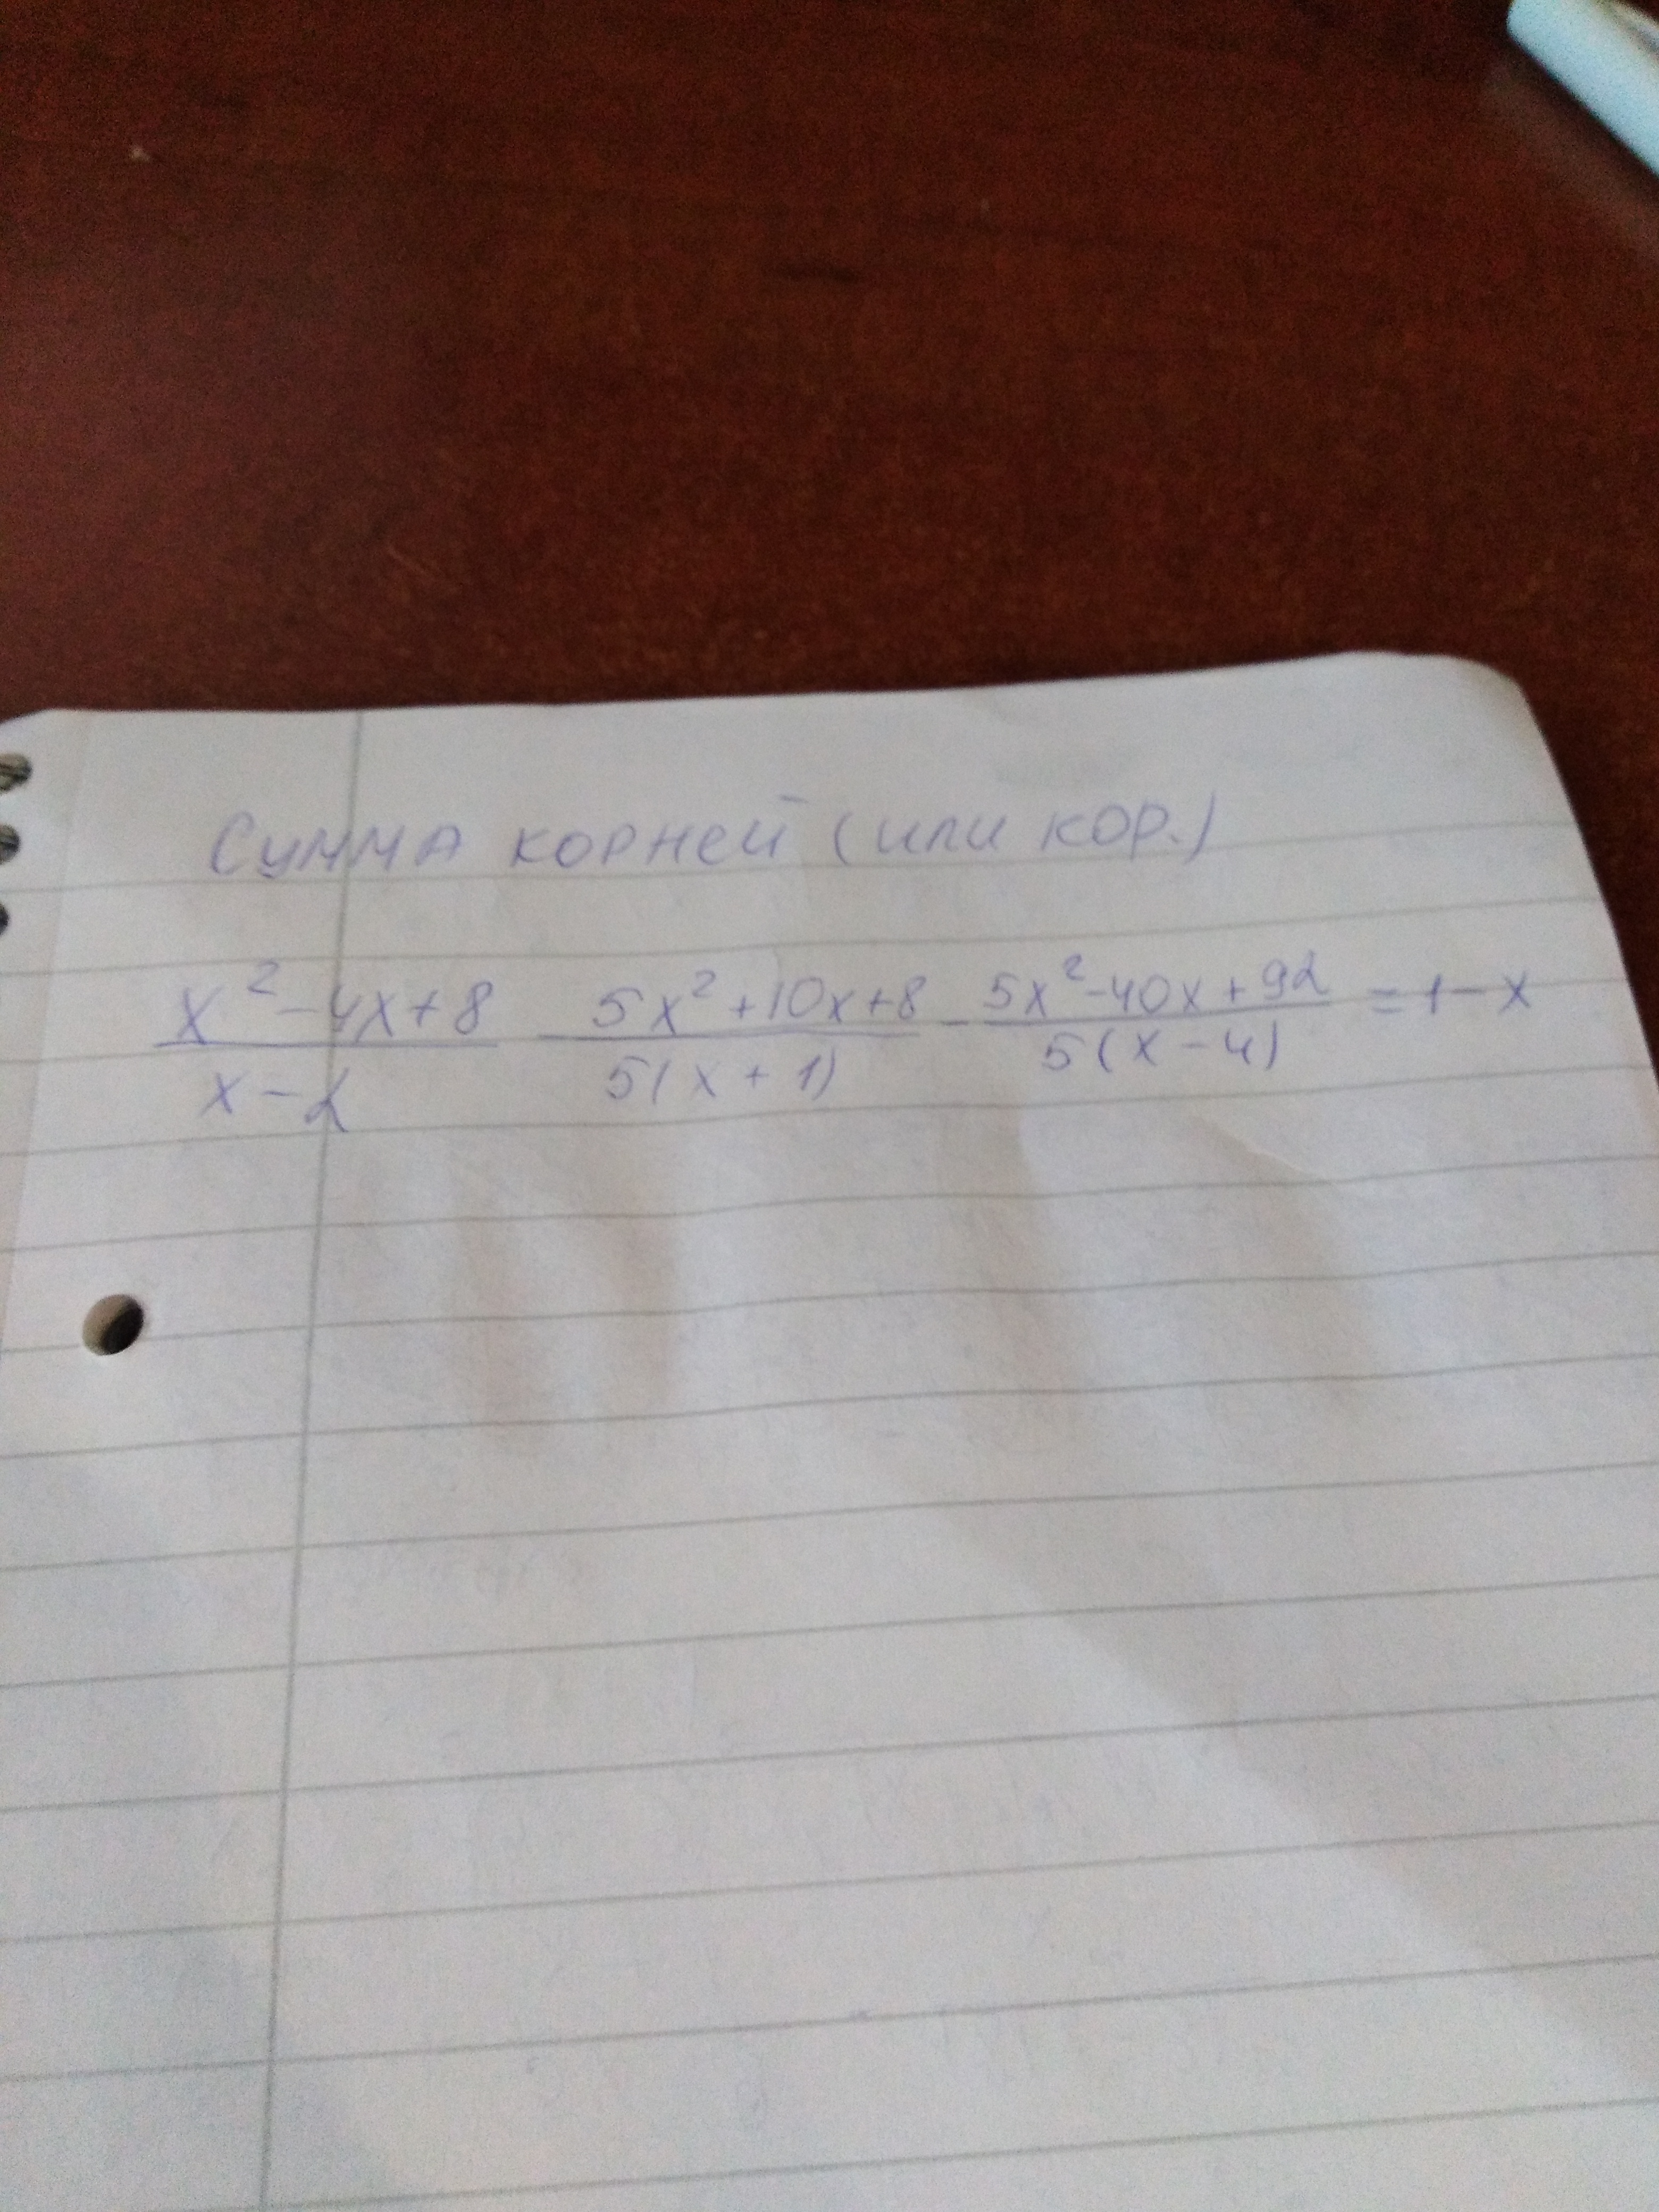 Сумма корней (или кор.)
x² - 4x + 8 / x - 2 - 5x² + 10x + 8 / 5(x + 1) - 5x² - 40x + 92 / 5(x - 4) = 1 - x